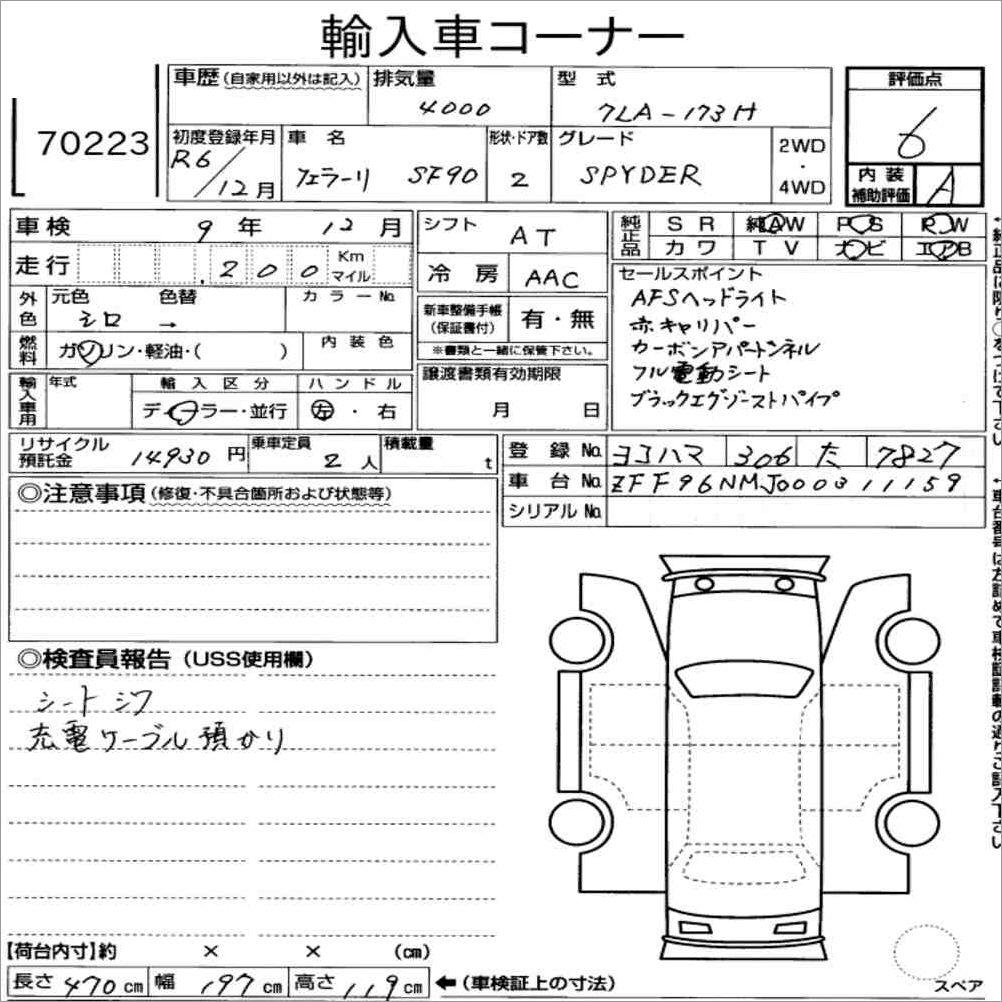 輸入車コーナー
70223
車歴(自家用以外は記入) 排気量 4000 型 式 7LA-173H 評価点 6
初度登録年月 R6/12月 車 名 フェラーリ SF90 形状・ドア数 2 グレード SPYDER 2WD・4WD 内装補助評価 A
車検 9年 12月 シフト AT 純正品 SR 純AW PS R.W
カワ TV ナビ エアB
走行 .200 Km マイル 冷房 AAC
外色 元色 シロ 色替 → カラーNo.
新車整備手帳(保証書付) 有・無
※書類と一緒に保管下さい。
燃料 ガソリン・軽油・( ) 内装色
セールスポイント
AFSヘッドライト
赤キャリパー
カーボンアパートンネル
フル電動シート
ブラックエグゾーストパイプ
輸入車用 年式 輸入区分 ハンドル
ディーラー・並行 左・右
譲渡書類有効期限
月 日
リサイクル預託金 14930円 乗車定員 2人 積載量 t
登録No. ヨコハマ 306 た 7827
車台No. ZFF96NMJ000311159
シリアルNo.
◎注意事項(修復・不具合箇所および状態等)
◎検査員報告(USS使用欄)
シートシワ
充電ケーブル預かり
【荷台内寸】約 × × (cm)
長さ 470cm 幅 197cm 高さ 119cm ←(車検証上の寸法)
スペア